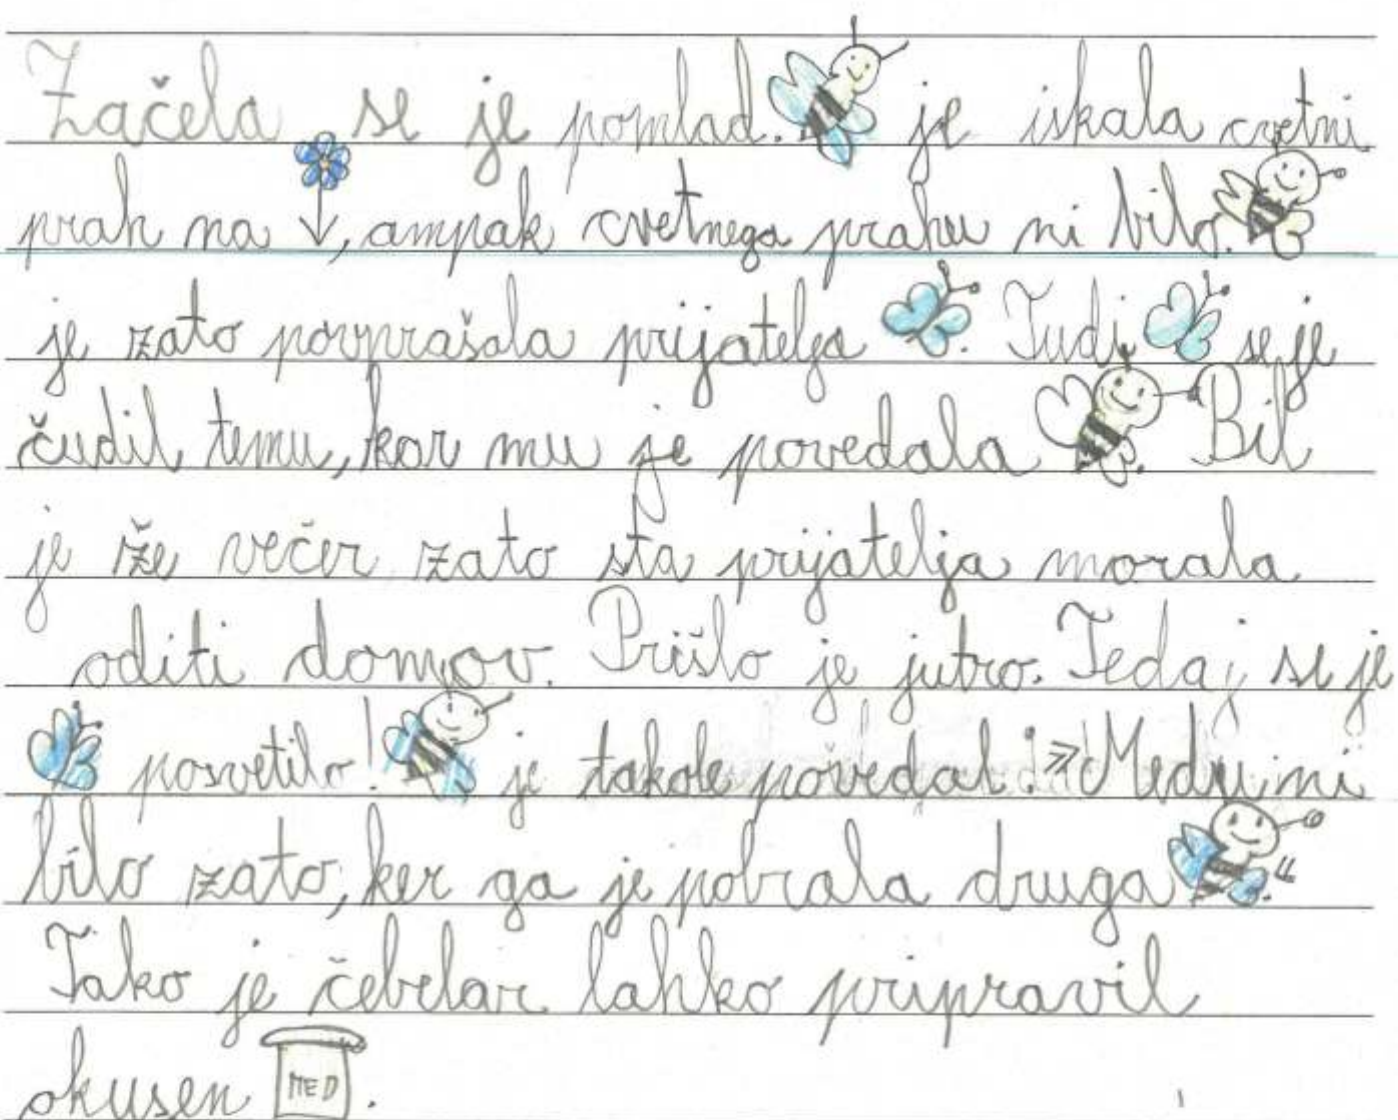 Začela se je pomlad. je iskala cvetni
prah na , ampak cvetnega prahu ni bilo.
je zato povprašala prijatelja . Tudi se je
čudil temu, kar mu je povedala . Bil
je že večer zato sta prijatelja morala
oditi domov. Prišlo je jutro. Tedaj se je
posvetilo! je takole povedal: »Medu ni
bilo zato, ker ga je pobrala druga .“
Tako je čebelar lahko pripravil
okusen MED .